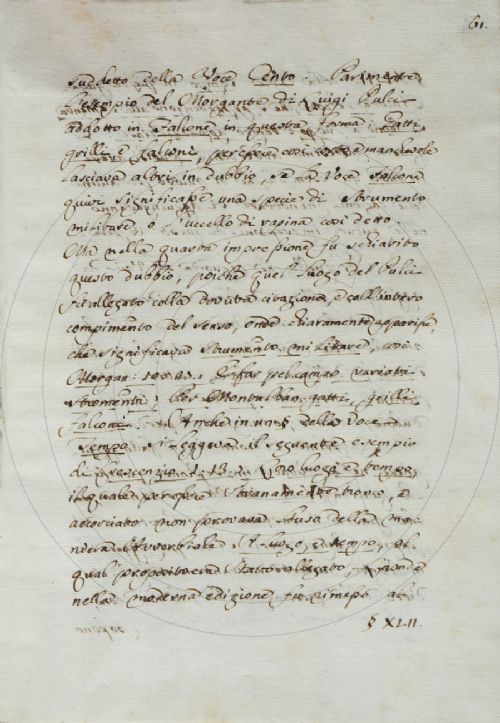 61.
suddetto della Voce Cento. Parimente
l'esempio del Morgante di Luigi Pulci
addotto in Falcone in questa forma: Gatti,
grilli e falconi, per esser così mancevole
lasciava altrui in dubbio, se la Voce Falcone
quivi significasse una specie di strumento
militare, o l'uccello di rapina così detto.
Ma nella quarta impressione fu
questo dubbio, poichè quel luogo del Pulci
fu allegato colla dovuta citazione, e coll'intero
compimento del senso, onde chiaramente apparisse,
che significava strumento militare, così
Morgan. E far pel campo variati
stromenti Per Montalban, gatti, grilli
falconi. Anche in un § della voce
Tempo, si leggeva il seguente esempio
di Crescenzio. luogo e tempo,
il quale per esser stranamente tronco, e
accorciato non provava l'usa della ma-
niera Avverbiale A luogo, e tempo, al
qual proposito era stato allegato,
nella moderna edizione fu rimesso al
§ XLII.